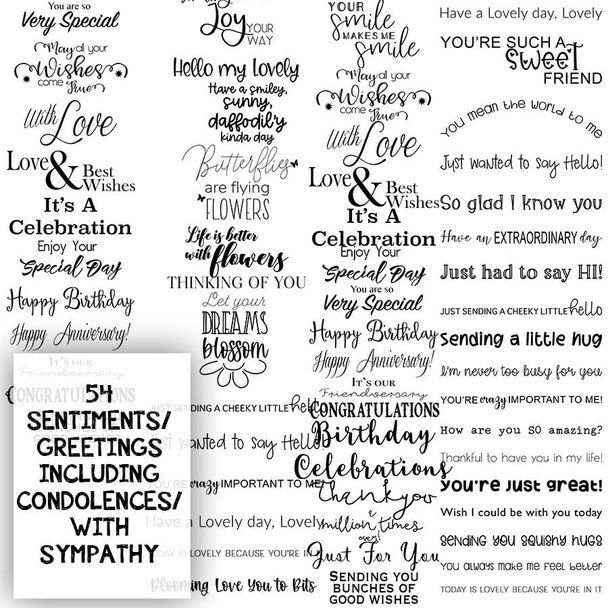 You are so
Very Special
May all your
Wishes
come True
With
Love
Love & Best
Wishes
It's A
Celebration
Enjoy Your
Special Day
Happy Birthday
Happy Anniversary!
IT'S OUR
Friendversary
CONGRATULATIONS
54
SENTIMENTS/
GREETINGS
INCLUDING
CONDOLENCES/
WITH
SYMPATHY
Joy YOUR
WAY
Hello my Lovely
Have a smiley,
sunny,
daffodil'y
kinda day
Butterflies
are flying
FLOWERS
Life is better
with flowers
THINKING OF YOU
Let your
DREAMS
blossom
JUST SENDING A CHEEKY LITTLE hello
Just wanted to say Hello!
YOU'RE crazy IMPORTANT TO ME!
Have a Lovely day, Lovely
TODAY IS LOVELY BECAUSE YOU'RE IN IT
Blooming Love You to Bits
YOUR
smile
MAKES ME
smile
May all your
Wishes
come True
With
Love
Love & Best
Wishes
It's A
Celebration
Enjoy Your
Special Day
You are so
Very Special
Happy Birthday
Happy Anniversary!
IT'S OUR
Friendversary
CONGRATULATIONS
Birthday
Celebrations
thank you
a million times
over!
Just For You
SENDING YOU
BUNCHES OF
GOOD WISHES
Have a Lovely day, Lovely
YOU'RE SUCH A
Sweet
FRIEND
You mean the world to me
Just wanted to say Hello!
So glad I know you
Have an EXTRAORDINARY day
Just had to say HI!
JUST SENDING A CHEEKY LITTLE hello
Sending a little hug
I'm never too busy for you
YOU'RE crazy IMPORTANT TO ME!
How are you SO amazing?
Thankful to have you in my life!
you're just great!
Wish I could be with you today
sending you squishy hugs
You always make me feel better
TODAY IS LOVELY BECAUSE YOU'RE IN IT